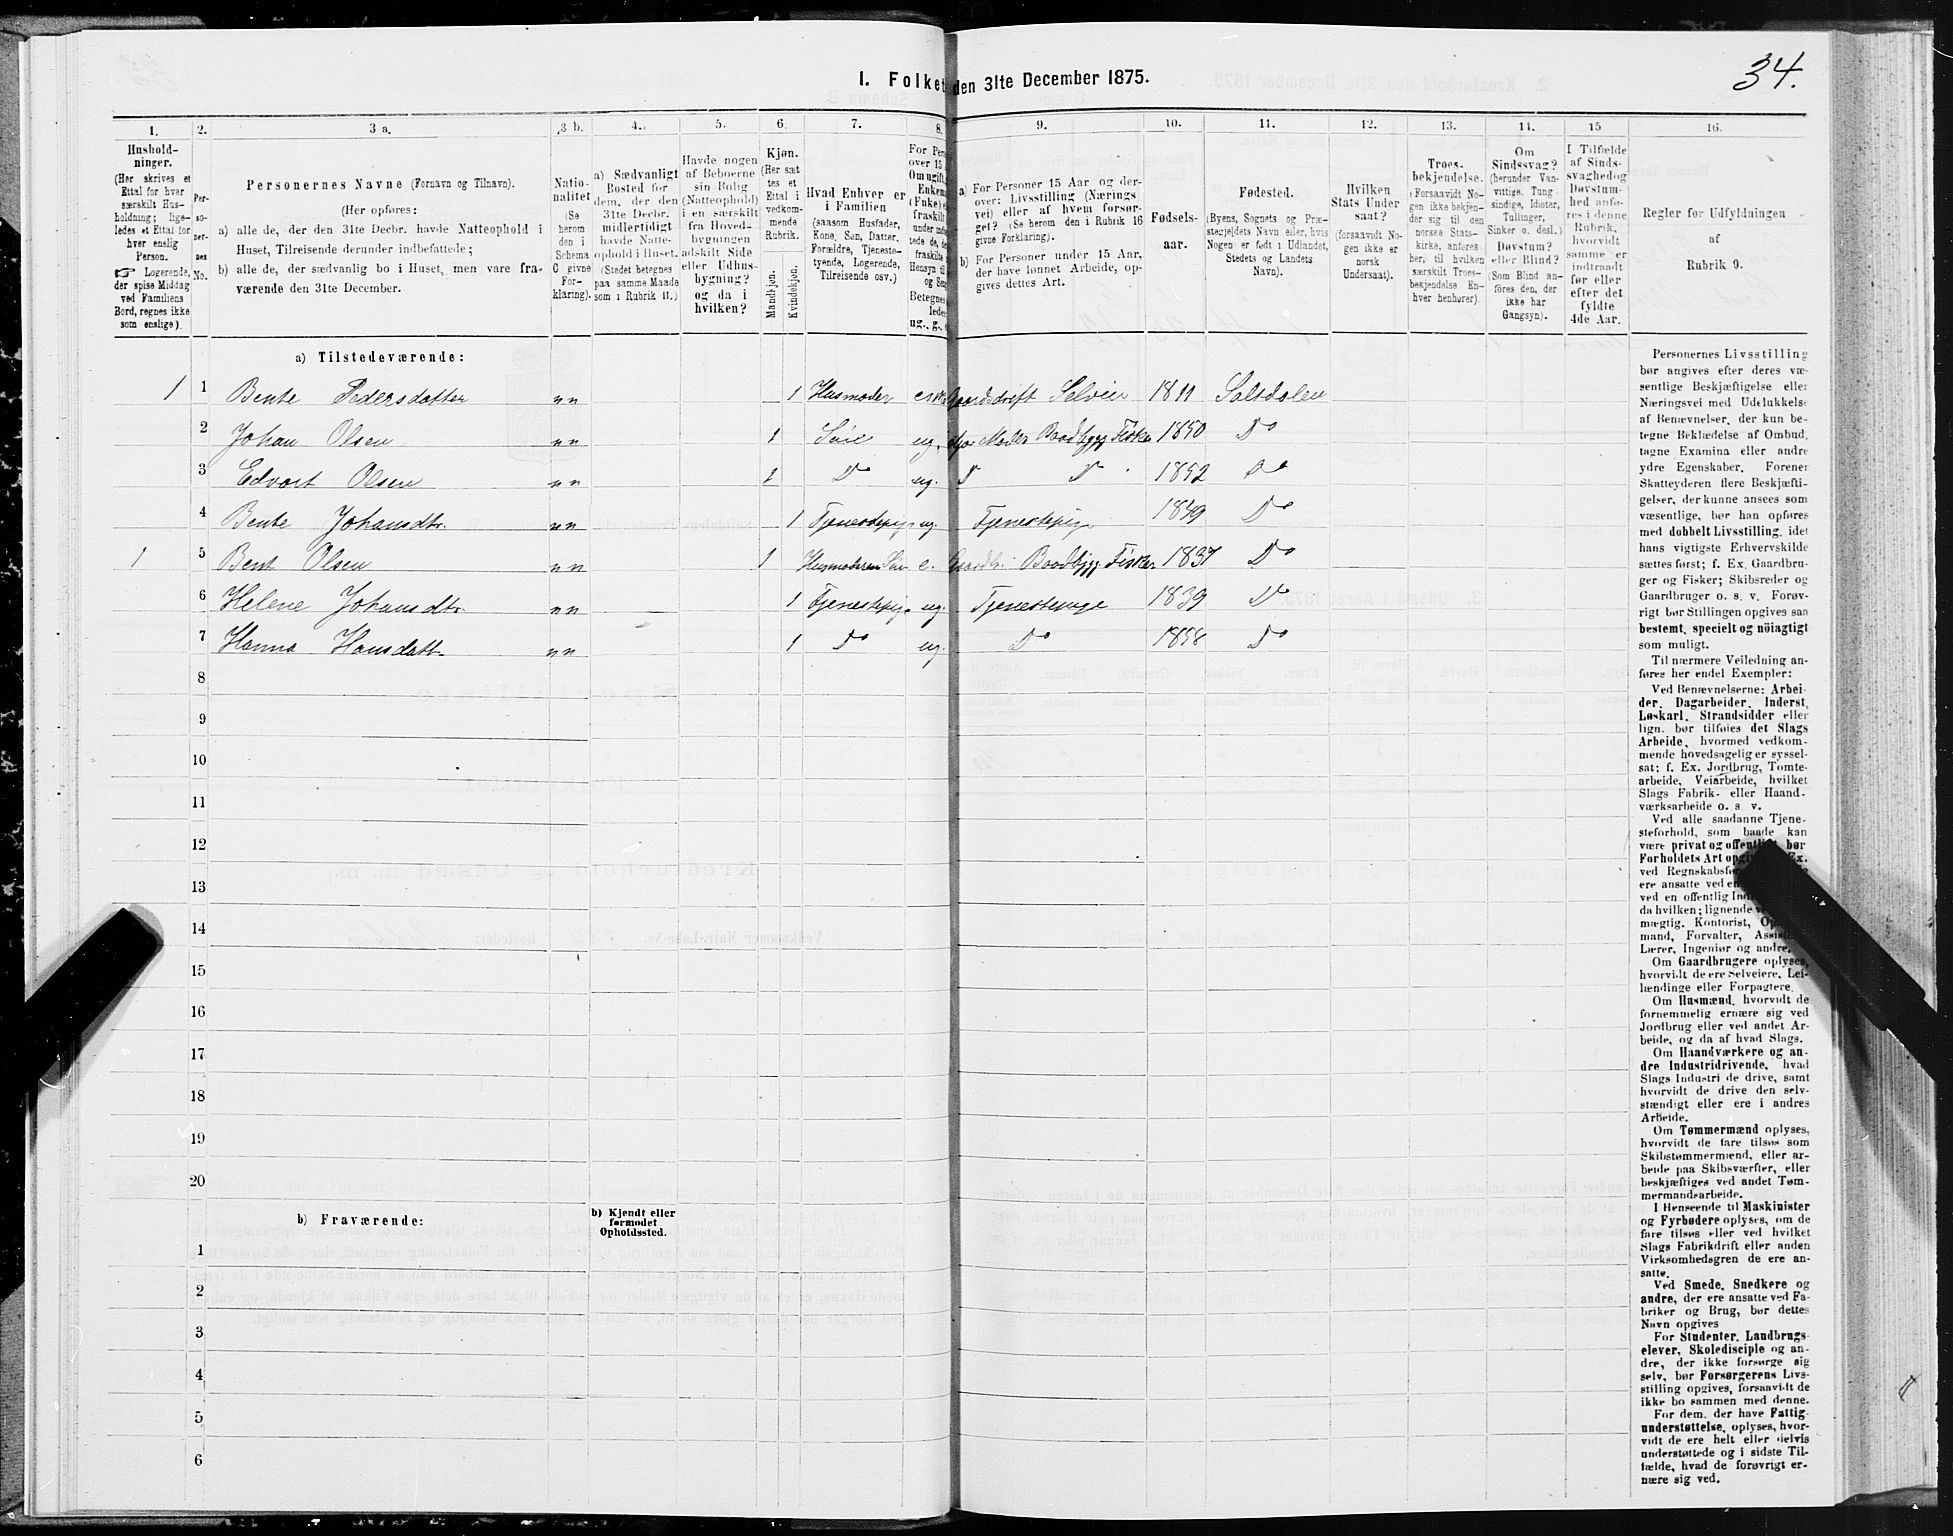 34.
I. Folket den 31te December 1875.
1. 2. 3 a. 3 b. 4. 5. 6. 7. 8. 9. 10. 11. 12. 13. 14. 15 16.
Hushold-
ninger.
(Her skrives et
Ettal for hver
særskilt Hus-
holdning; lige-
ledes et Ettal for
hver enslig
Person.
☞ Logerende,
der spise Middag
ved Familiens
Bord, regnes ikke
som enslige).
Per-
so-
ner-
nes
No.
Personernes Navne (Fornavn og Tilnavn).
(Her opføres:
a) alle de, der den 31te Decbr. havde Natteophold i
Huset, Tilreisende derunder indbefattede;
b) alle de, der sædvanlig bo i Huset, men vare fra-
værende den 31te December.
Natio-
nalitet
(Se
herom
den i
Schema
C givne
For-
klaring).
a) Sædvanligt
Bosted for
dem, der den
31te Decbr.
midlertidigt
havde Natte-
ophold i Huset.
(Stedet betegnes
paa samme Maade
som i Rubrik 11.)
Havde nogen
af Beboerne
sin Bolig
(Natteophold)
i en særskilt
fra Hoved-
bygningen
adskilt Side
eller Udhus-
bygning?
og da i
hvilken?
Kjøn.
(Her sæt-
tes et
Ettal i
vedkom-
mende
Rubrik.
Mandkjøn.
Kvindekjøn.
Hvad Enhver er
i Familien
(saasom Husfader,
Kone, Søn, Datter,
Forældre, Tjeneste-
tyende, Logerende,
Tilreisende osv.)
For Per
over 15
Om ugift,
Enkem
(Enke)
fraskilt
Hensyn til
Betegnes
ledes
ug., g.,
a) For Personer 15 Aar og der-
over: Livsstilling (Nærings
vei) eller af hvem forsør-
get? (Se herom den i Rubrik 16
givne Forklaring).
b) For Personer under 15 Aar,
der have lønnet Arbeide, op-
gives dettes Art.
Fødsels-
aar.
Fødested.
(Byens, Sognets og Præ-
stegjeldets Navn eller, hvis
Nogen er født i Udlandet,
Stedets og Landets
Navn).
Hvilken
Stats Under
saat?
(forsaavidt No-
gen ikke er
norsk
Undersaat).
Troes-
bekjendelse.
(Forsaavidt No-
gen ikke bekjen-
der sig til den
norske Stats-
kirke, anføres
her, til hvilken
særskilt Troes-
bekjendelse En-
hver henhører).
Om
Sindssvag?
(herunder Van-
vittige, Tung-
sindige, Idioter,
Tullinger,
Sinker o. desl.)
Døvstum?
eller Blind?
(Som Blind an-
føres den, der
ikke har
Gangsyn).
I Tilfælde
af Sinds-
svaghed og
Døvstum-
hed anfø-
res i denne
Rubrik,
hvorvidt
samme er
indtraadt
før eller
efter det
fyldte
4de Aar.
Regler for Udfyldningen
af
Rubrik 9.
a) Tilstedeværende:
1 1 Bente Pedersdatter nn 1 Husmoder Gaardsdrift Selveier 1811 Saltdalen
2 Johan Olsen nn 1 Søn ug. Moder Baadbygg Fisker 1850 Do
3 Edvart Olsen nn 1 Do ug. Do Do 1852 Do
4 Bente Johansdtr. nn 1 Tjenestepige ug. Tjenestepige 1849 Do
1 5 Bent Olsen nn 1 Husmoderen Søn e. Baadbygg. Fisker 1837 Do
6 Helene Johansdtr. nn 1 Tjenestepige ug. Tjenestepige 1839 Do
7 Hanna Hansdatt. nn 1 Do ug. Do 1858 Do
8
9
10
11
12
13
14
15
16
17
18
19
20
b) Fraværende:
b) Kjendt eller
formodet
Opholdssted.
1
2
3
4
5
6
Personernes Livsstilling
bør angives efter deres væ-
sentlige Beskjæftigelse eller
Næringsvei med Udelukkelse
af Benævnelser, der kun be-
tegne Beklædelse af Ombud,
tagne Examina eller andre
ydre Egenskaber. Forener
Skatteyderen flere Beskjæfti-
gelser, der kunne ansees som
væsentlige, bør han opføres
med dobbelt Livsstilling, idet
hans vigtigste Erhvervskilde
sættes først; f. Ex. Gaardbru-
ger og Fisker; Skibsreder og
Gaardbruger o. s. v. Forøv-
rigt bør Stillingen opgives saa
bestemt, specielt og nöiagtigt
som muligt.
Til nærmere Veiledning an-
føres her endel Exempler:
Ved Benævnelserne: Arbei-
der, Dagarbeider, Inderst,
Løskarl, Strandsidder eller
lign. bør tilføies det Slags
Arbeide, hvormed vedkom-
mende hovedsagelig er syssel-
sat; f. Ex. Jordbrug, Tomte-
arbeide, Veiarbeide, hvilket
Slags Fabrik- eller Haand-
værksarbeide o. s v.
Ved alle saadanne Tjene-
steforhold, som baade kan
være privat og offentligt, bør
Forholdets Art opgives Ex.
ved Regnskabsfø
ere ansatte ved en
ved en offentlig Ind
da hvilken; lignende
mægtig, Kontorist, Op
mand, Forvalter, Assiste
Lærer, Ingeniør og andre.
Om Gaardbrugere oplyses,
hvorvidt de ere Selveiere, Lei-
lændinge eller Forpagtere.
Om Husmænd, hvorvidt de
fornemmelig ernære sig ved
Jordbrug eller ved andet Ar-
beide, og da af hvad Slags.
Om Haandværkere og an-
dre Industridrivende, hvad
Slags Industri de drive, samt
hvorvidt de drive den selv-
stændigt eller ere i andres
Arbeide.
Om Tømmermænd oplyses,
hvorvidt de fare tilsøs som
Skibstømmermænd, eller ar-
beide paa Skibsværfter, eller
beskjæftiges ved andet Tøm-
mermandsarbeide.
I Henseende til Maskinister
og Fyrbødere oplyses, om de
fare tilsøs eller ved hvilket
Slags Fabrikdrift eller anden
Virksomhedsgren de ere an-
satte.
Ved Smede, Snedkere og
andre, der ere ansatte ved Fa-
briker og Brug, bør dettes
Navn opgives
For Studenter, Landbrugs-
elever, Skoledisciple og an-
dre, der ikke forsørge sig
selv, bør Forsørgerens Livs-
stilling opgives, forsaavidt de
ikke bo sammen med denne.
For dem, der have Fattig-
understøttelse, oplyses, hvor-
vidt de ere helt eller delvis
understøttede og i sidste Til-
fælde, hvad de forøvrigt er-
nære sig ved.